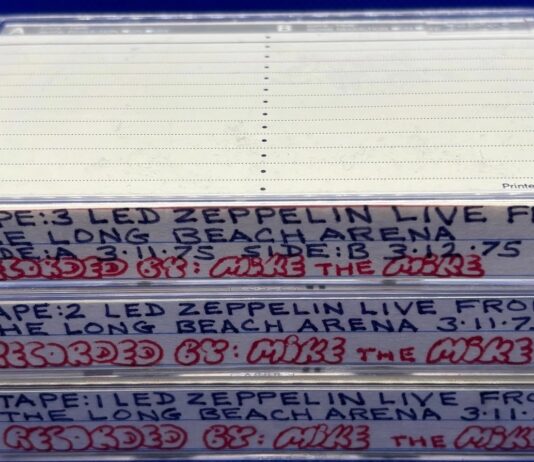 A B
Printe
PE:3 LED ZEPPELIN LIVE F
E LONG BEACH ARENA
DE:A 3·11·75 SIDE:B 3·12·75
ECORDED BY: MIKE THE MIKE
APE:2 LED ZEPPELIN LIVE FRO
HE LONG BEACH ARENA 3·11·7
RECORDED BY: MIKE THE MIKE
TAPE:1 LED ZEPPELIN LIVE FRO
THE LONG BEACH ARENA 3·11·
RECORDED BY: MIKE THE MIK